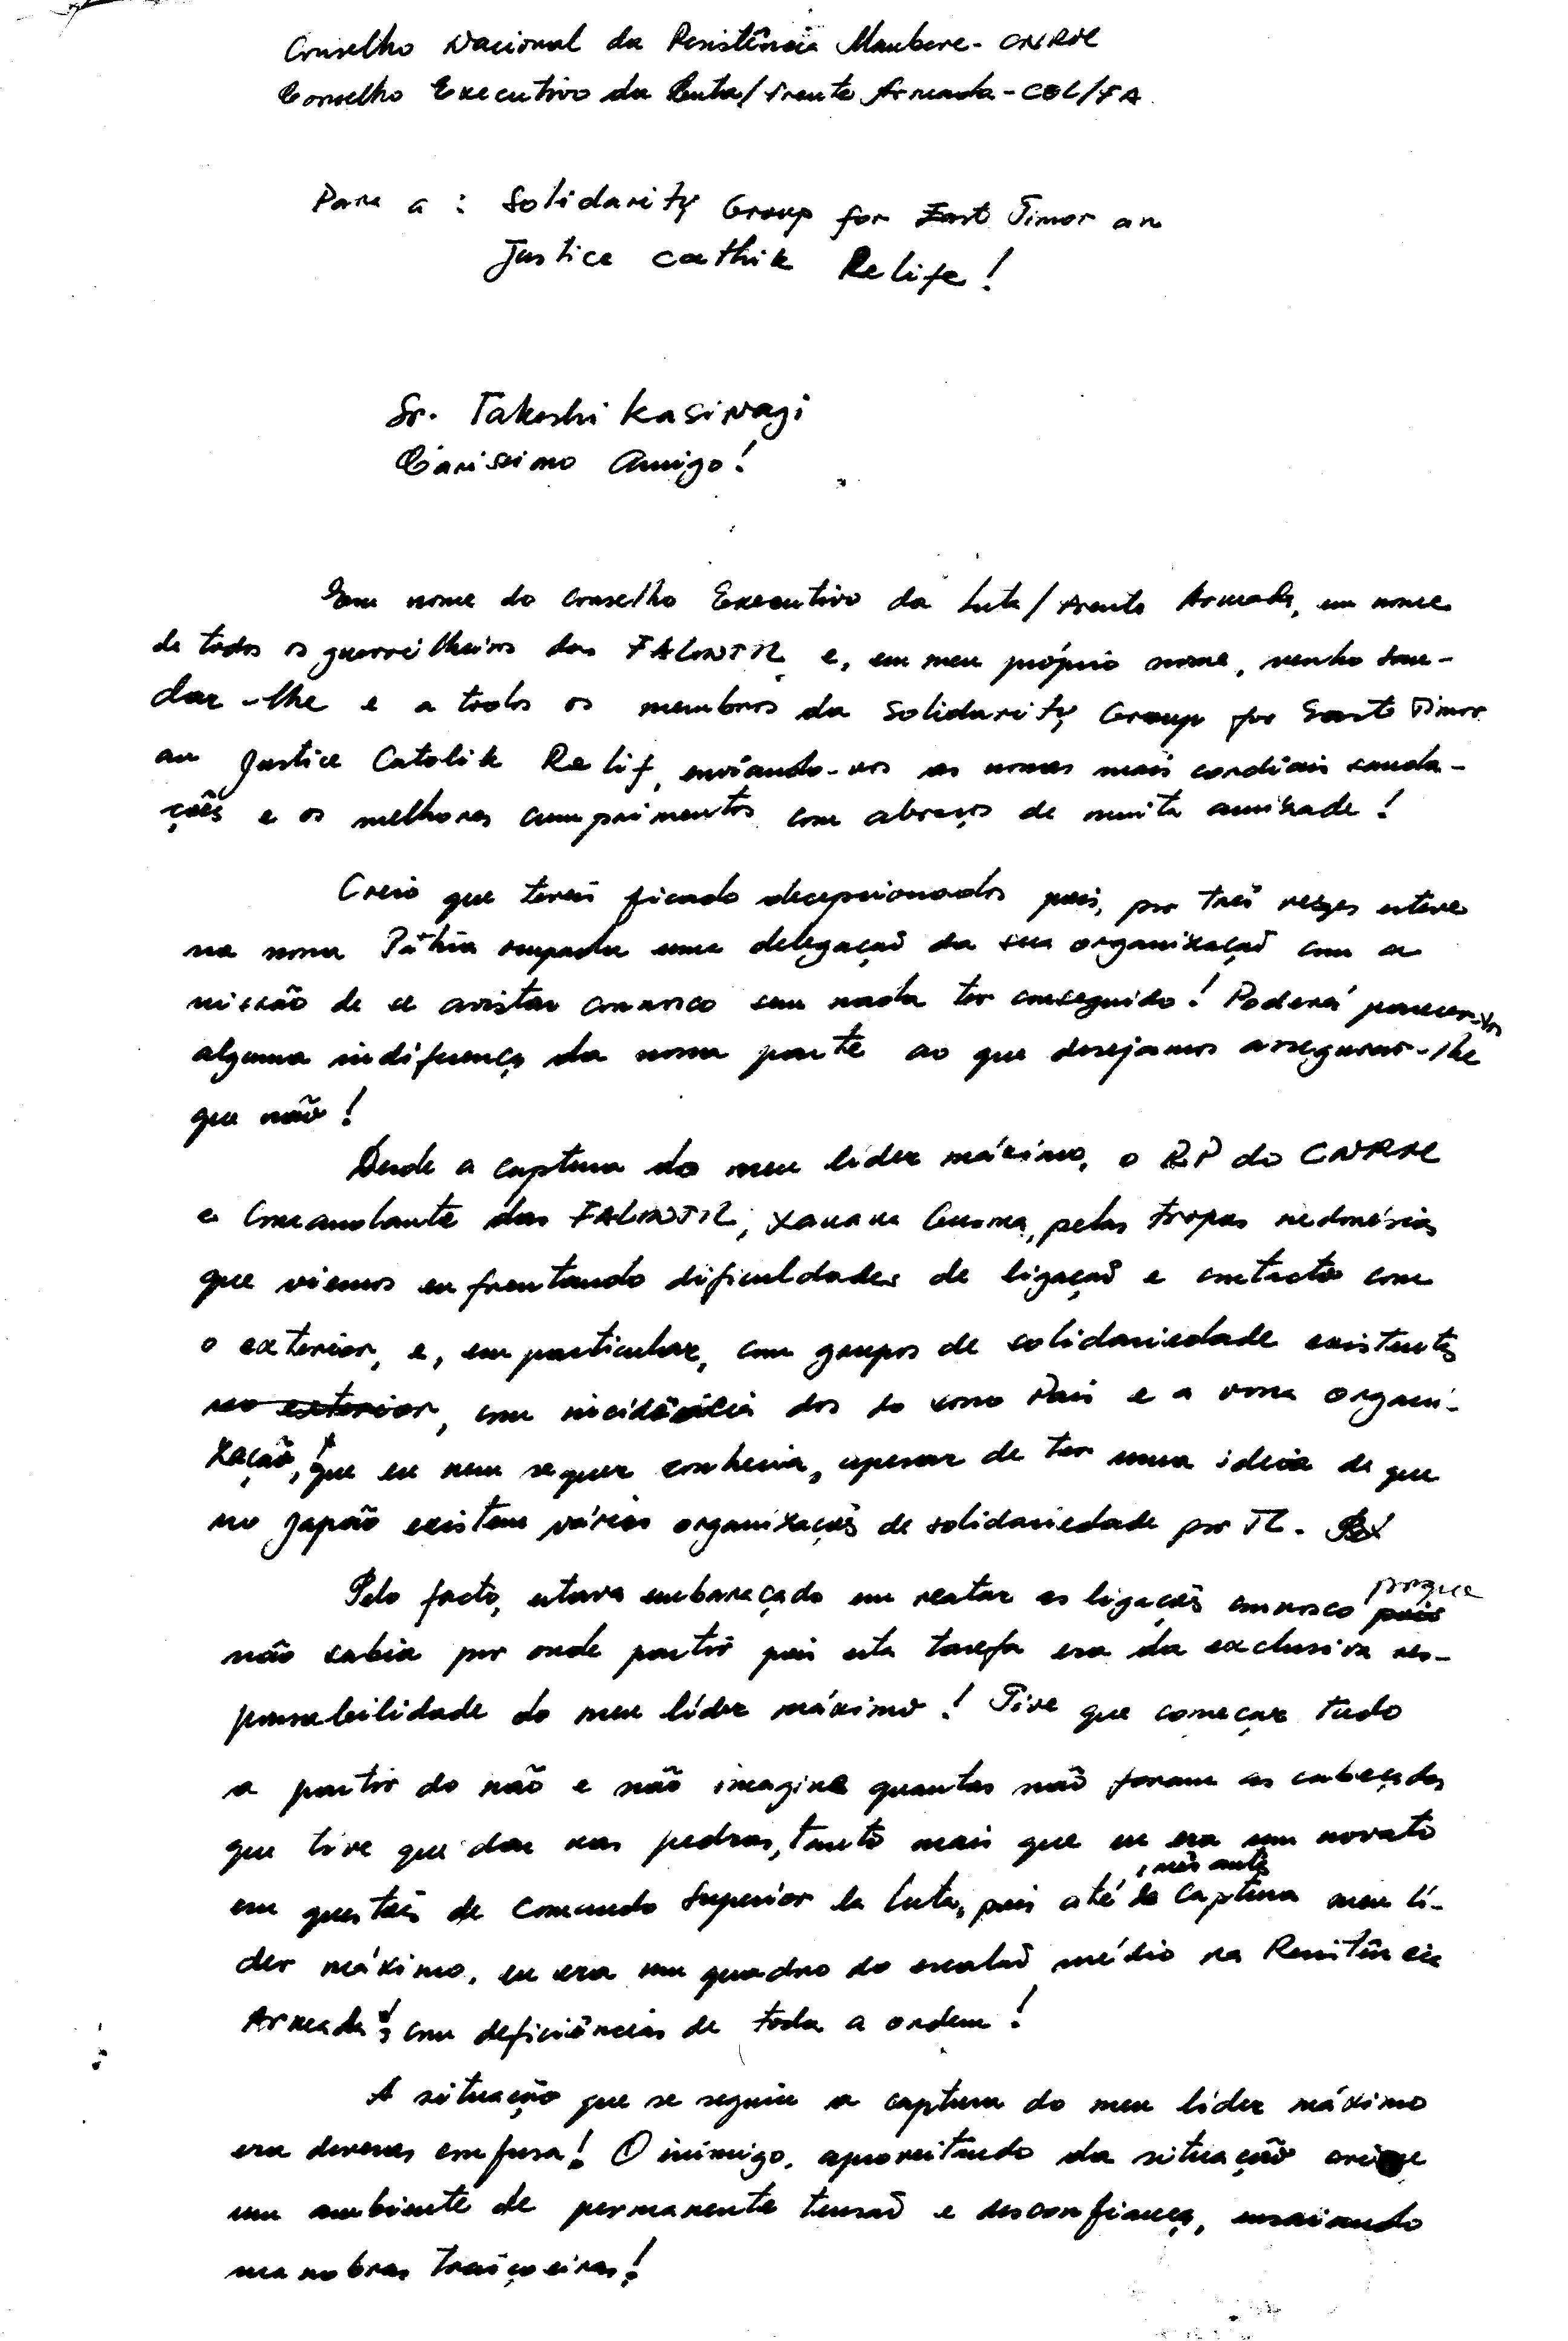 Conselho Nacional da Resistência Maubere - CNRM
Conselho Executivo da Luta/Frente Armada - CEL/FA
Para a : Solidarity Group for East Timor an
Justice cathik Relife!
Sr. Takeshi Kasiwagi
Caríssimo Amigo!
Em nome do Conselho Executivo da Luta/Frente Armada, em nome
de todos os guerrilheiros das FALINTIL e, em meu próprio nome, venho sau-
dar-lhe e a todos os membros da Solidarity Group for East Timor
an Justice Catolik Relif, enviando-vos as nossas mais cordiais sauda-
ções e os melhores cumprimentos com abraços de muita amizade!
Creio que terão ficado decepcionados pois, por três vezes esteve
na nossa Pátria ocupada uma delegação da sua organização com a
missão de se avistar connosco sem nada ter conseguido! Poderá parecer-vos
alguma indiferença da nossa parte ao que desejamos assegurar-lhe
que não!
Desde a captura do meu líder máximo, o RP do CNRM
e Comandante das FALINTIL, Xanana Gusmão, pelas tropas indonésias
que viemos enfrentando dificuldades de ligação e contacto com
o exterior, e, em particular, com grupos de solidariedade existentes
no exterior, com incidência dos do vosso País e a vossa organi-
zação, que eu nem sequer conhecia, apesar de ter uma ideia de que
no Japão existem várias organizações de solidariedade por TL.
Pelo facto, estava embaraçado em reatar as ligações connosco pois porque
não sabia por onde partir pois esta tarefa era da exclusiva res-
ponsabilidade do meu líder máximo! Tive que começar tudo
a partir do não e não imagina quantas não foram as cabeçadas
que tive que dar nas pedras, tanto mais que eu era um novato
em questões de Comando Superior da Luta, pois até a captura meu lí-
der máximo, eu era um quadro do escalão médio na Resistência
Armada, com deficiências de toda a ordem!
A situação que se seguiu a captura do meu líder máximo
era deveras confusa! O inimigo, aproveitando da situação criou
um ambiente de permanente tensão e desconfiança, ensaiando
manobras traiçoeiras!